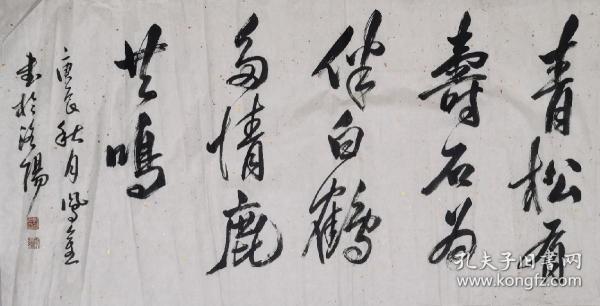 青松有
壽石為
伴白鶴
多情鹿
共鳴
庚辰秋月鳳金
書於洛陽
孔夫子旧书网
www.kongfz.com